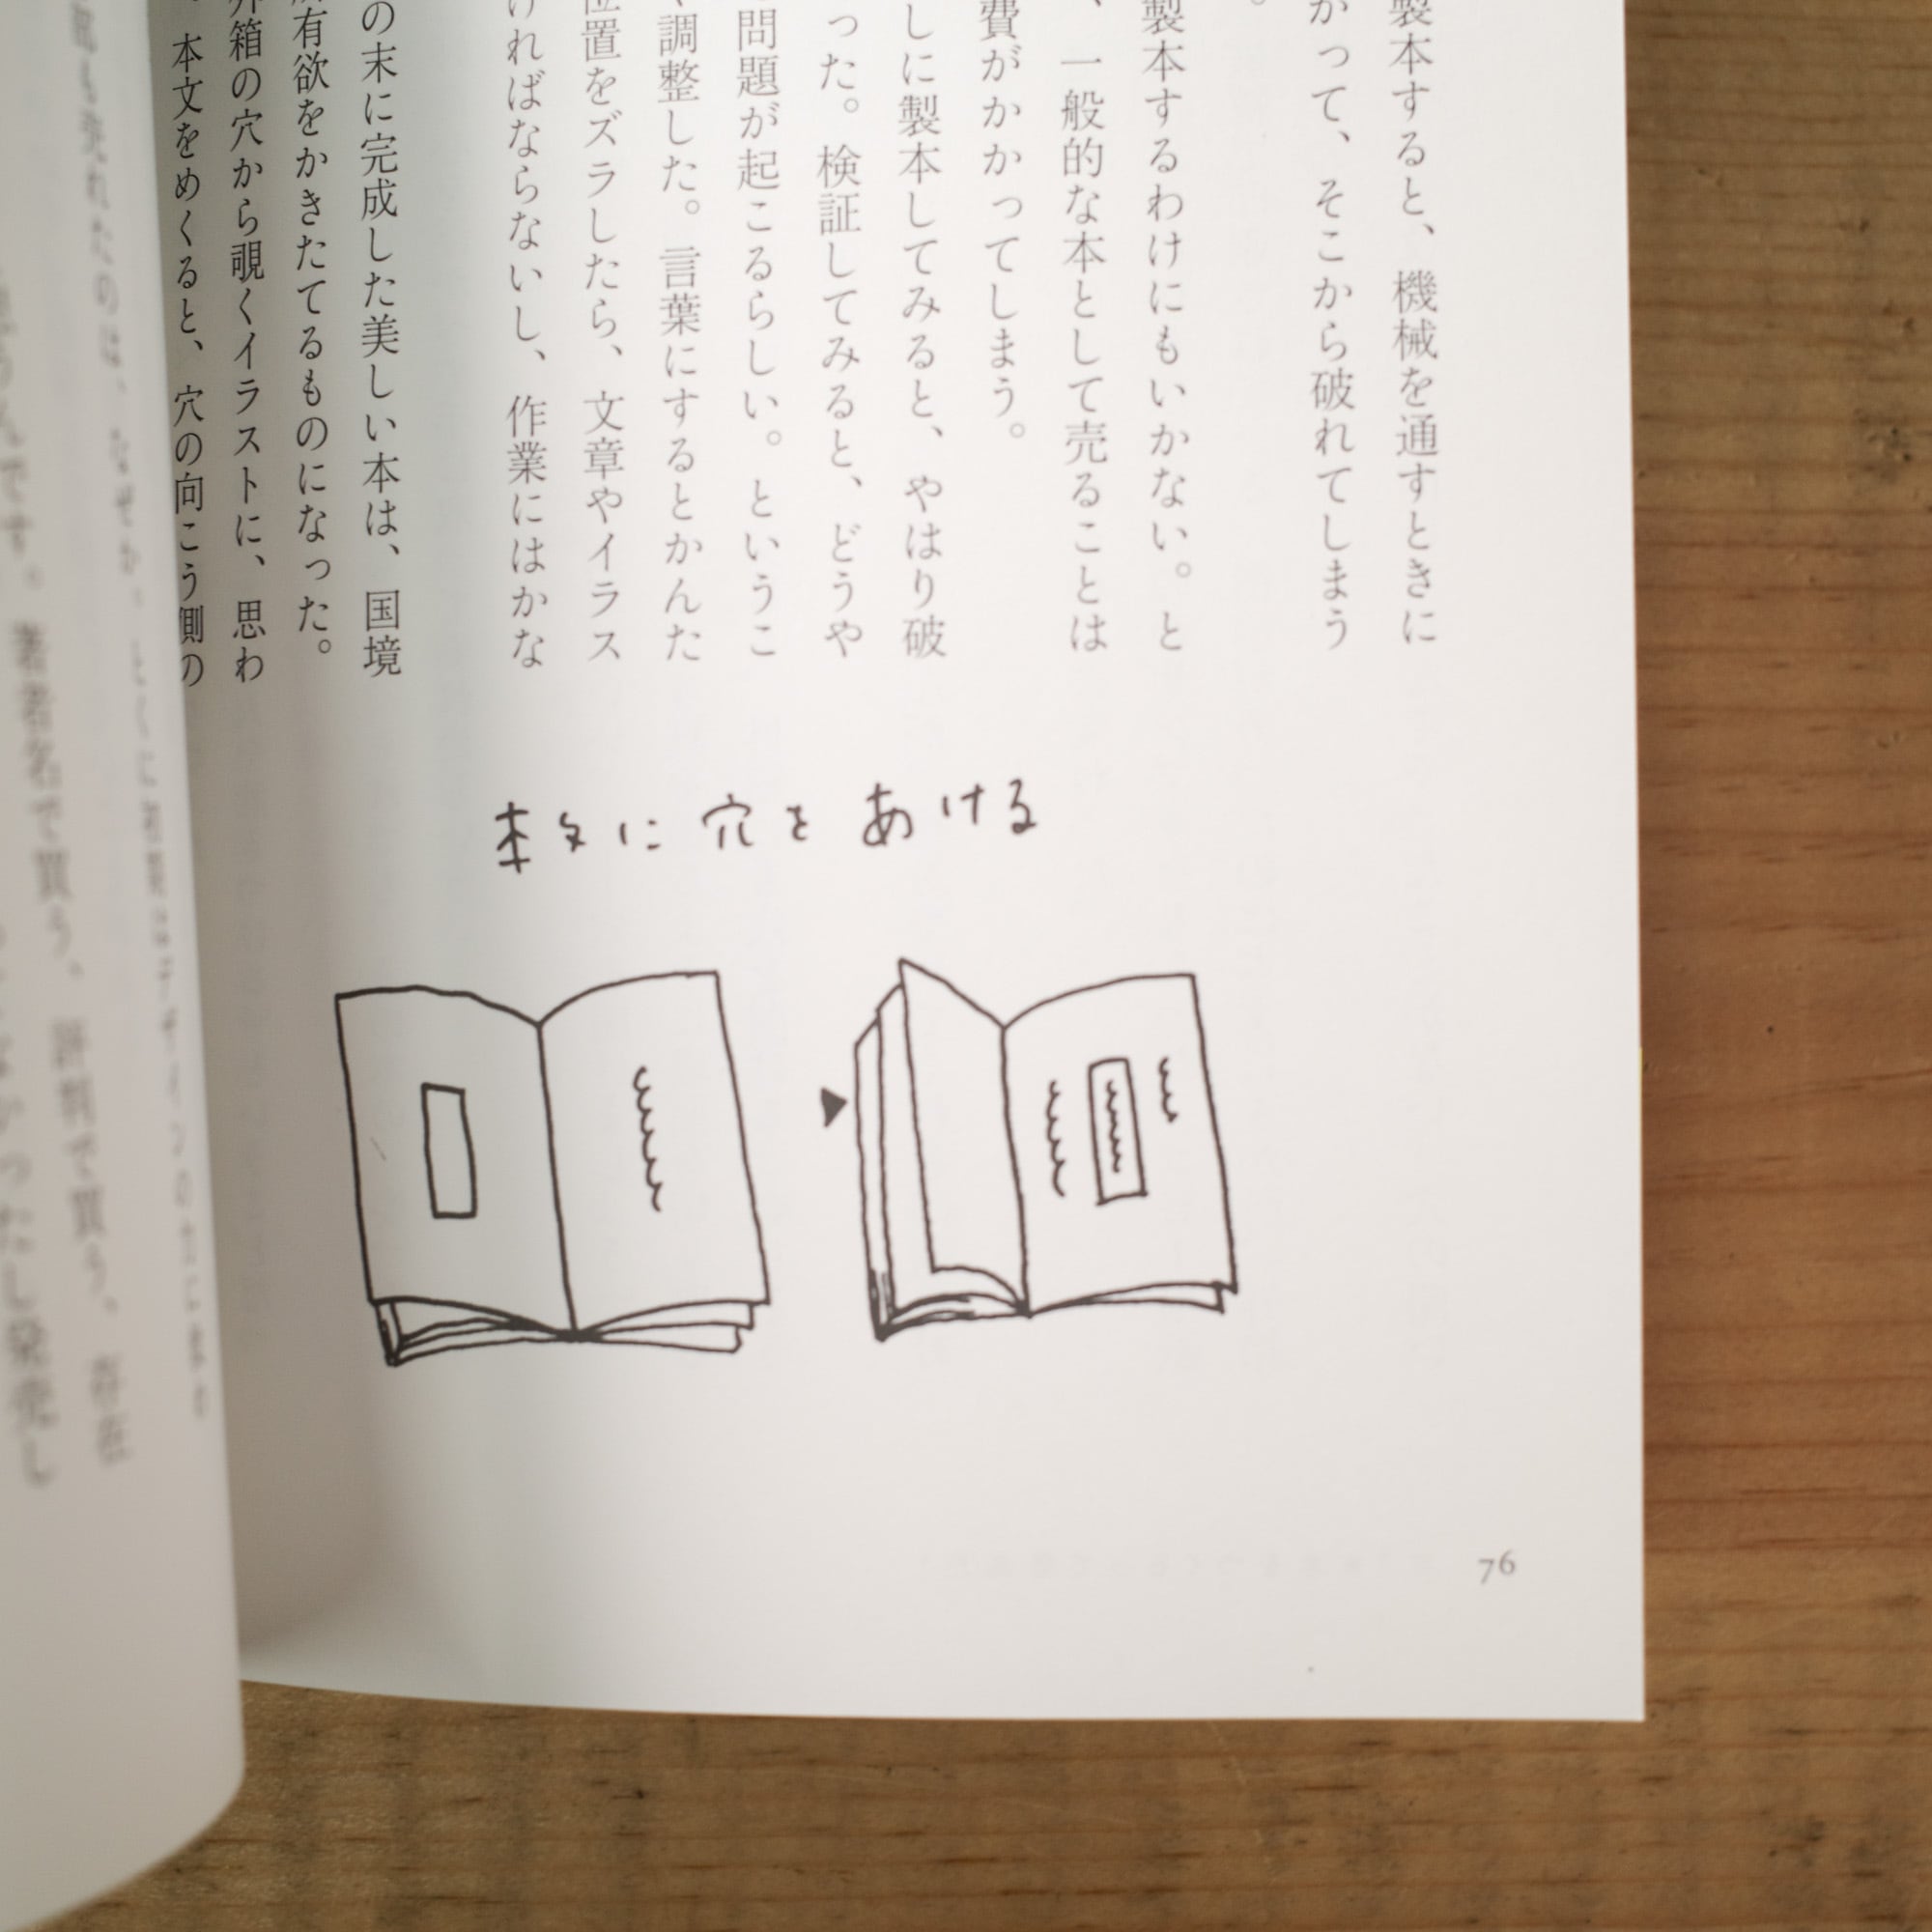 製本すると、機械を通すときに
かって、そこから破れてしまう
製本するわけにもいかない。と
、一般的な本として売ることは
費がかかってしまう。
しに製本してみると、やはり破
った。検証してみると、どうや
問題が起こるらしい。というこ
調整した。言葉にするとかんた
位置をズラしたら、文章やイラス
ければならないし、作業にはかな
の末に完成した美しい本は、国境
有欲をかきたてるものになった。
外箱の穴から覗くイラストに、思わ
本文をめくると、穴の向こう側の
本文に穴をあける
76
著者名で買う、評判で買う、存在